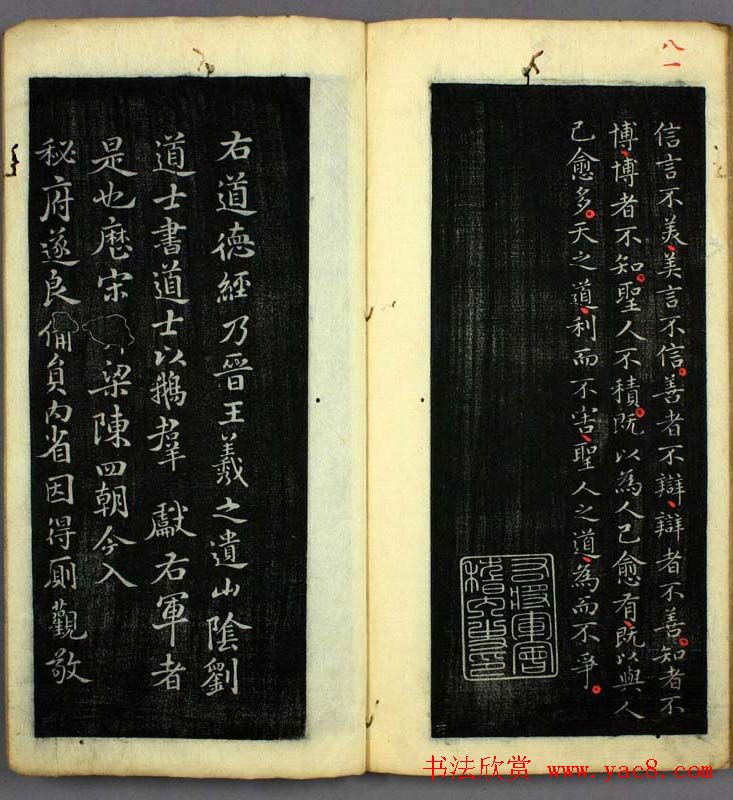 八一
信言不美美言不信善者不辯辯者不善知者不
博博者不知聖人不積既以為人己愈有既以與人
己愈多天之道利而不害聖人之道為而不爭
右道德經乃晉王羲之遺山陰劉
道士書道士以鵝羣獻右軍者
是也歷宋梁陳四朝今入
秘府遂良備員內省因得厠觀敬
书法欣赏 www.yac8.com